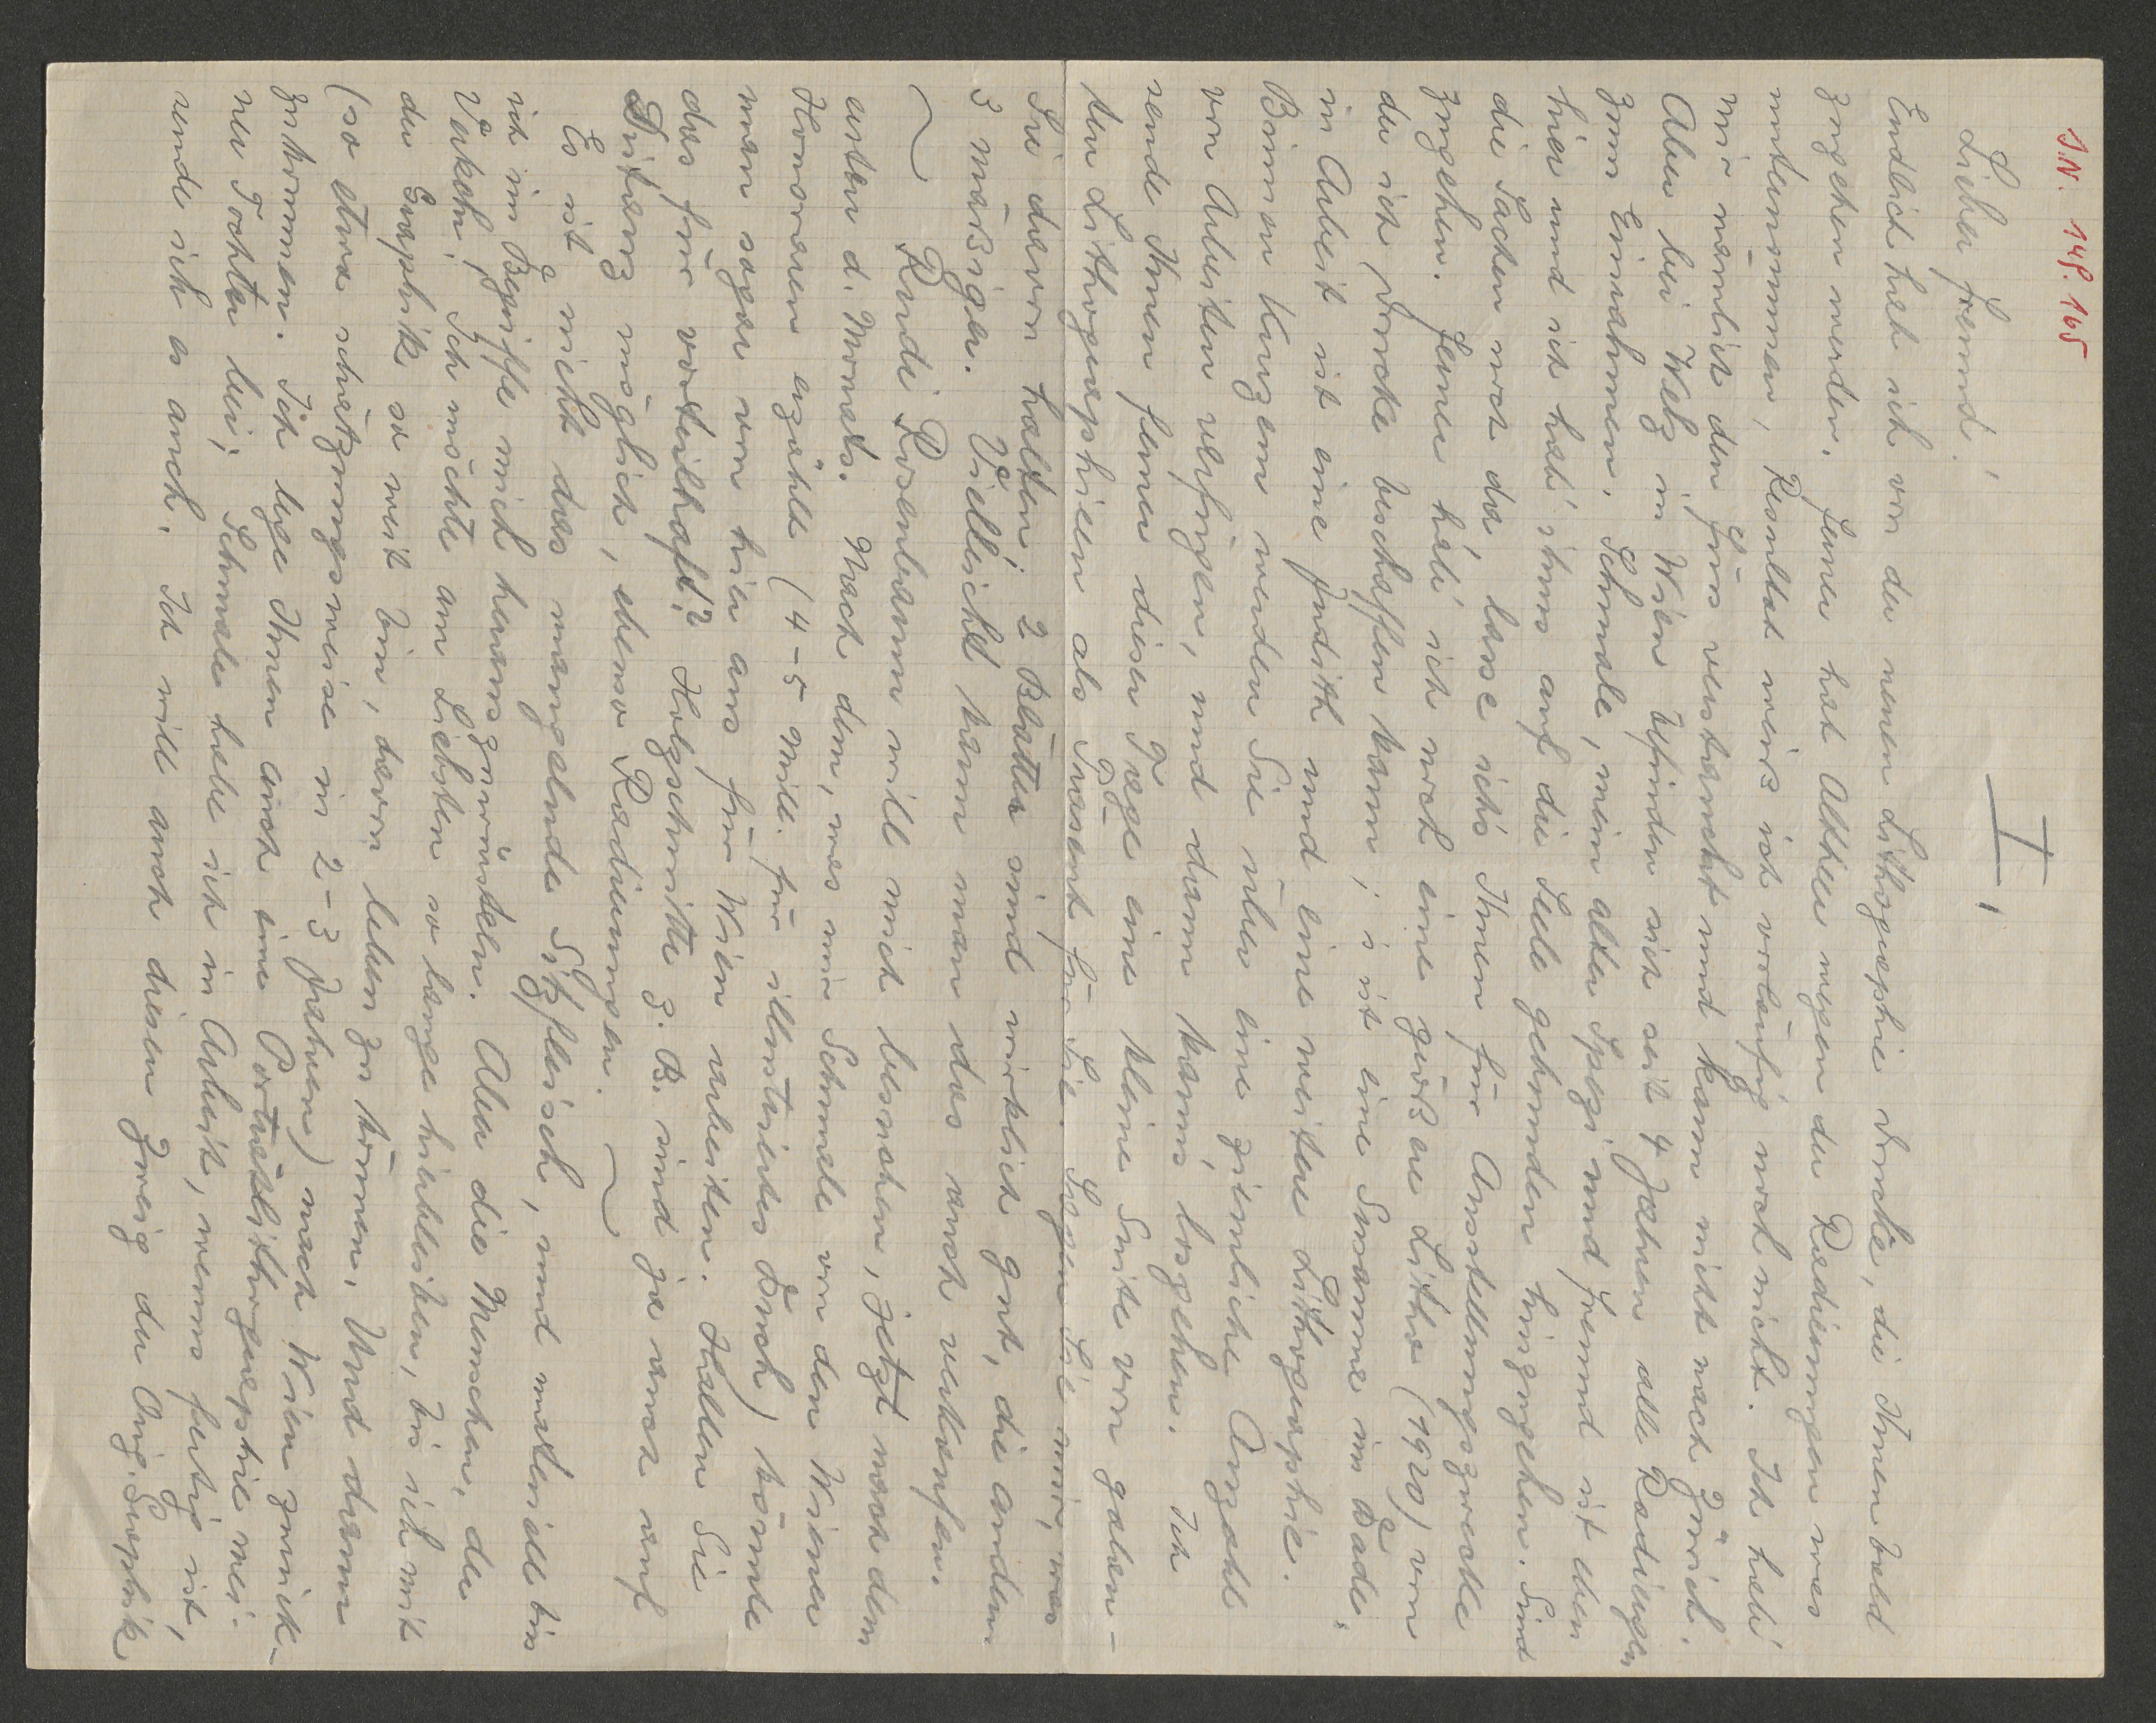 I.N. 148.165
I,
Lieber Freund!
Endlich hab ich von der neuen Lithographie Drucke, die Ihnen bald
zugehen werden. Ferner hat Alther wegen der Radierungen was
unternommen, Resultat weiß ich vorläufig noch nicht. Ich hab'
mir nämlich den Fuss verstaucht und kann nicht nach Zürich.
Aber bei Welz in Wien befinden sich seit 4 Jahren alle Radierungen
zum Einrahmen. Schmale, mein alter Spezi und Freund ist eben
hier und ich hab's ihm auf die Seele gebunden hinzugehen. Sind
die Sachen noch da, lasse ich's Ihnen für Ausstellungszwecke
zugehen. Ferner hab' ich noch eine größere Litho (1920) von
der ich Drucke beschaffen kann; 's ist eine Susanna im Bade.
in Arbeit ist eine Judith und eine weitere Lithographie.
Binnen Kurzem werden Sie über eine ziemliche Anzahl
von Arbeiten verfügen, und dann kann's losgehen. Ich
sende Ihnen ferner dieser Tage eine kleine Suite von galan-
ten Lithographien als Präsent für Sie. Sagen Sie mir, was
Sie davon halten; 2 Blätter sind wirklich gut, die andern
3 mäßiger. Vielleicht kann man das auch verkaufen.
~ Rudi Rosenbaum will mich besuchen, jetzt nach dem
ersten d. Monats. Nach dem, was mir Schmale von den Wiener
Honoraren erzählt (4-5 Mill. für illustriertes Buch) könnte
man sogar von hier aus für Wien arbeiten. Hallen Sie
das für vorteilhaft? Holzschnitte z. B. sind ja auch auf
Distanz möglich, ebenso Radierungen. ~
Es ist nicht das mangelnde Sitzfleisch, und materiell bin
ich im Begriffe mich herauszuwursteln. Aber die Menschen, der
Verkehr! Ich möchte am Liebsten so lange hierbleiben, bis ich mit
der Graphik so weit bin, davon leben zu können. Und dann
(so etwa schätzungsweise in 2-3 Jahren) nach Wien zurück-
zukommen. Ich lege Ihnen auch eine Porträtlithographie mei-
ner Tochter bei; Schmale habe ich in Arbeit, wenns fertig ist,
sende ich es auch. Ich will auch diesen Zweig der Orig. Graphik